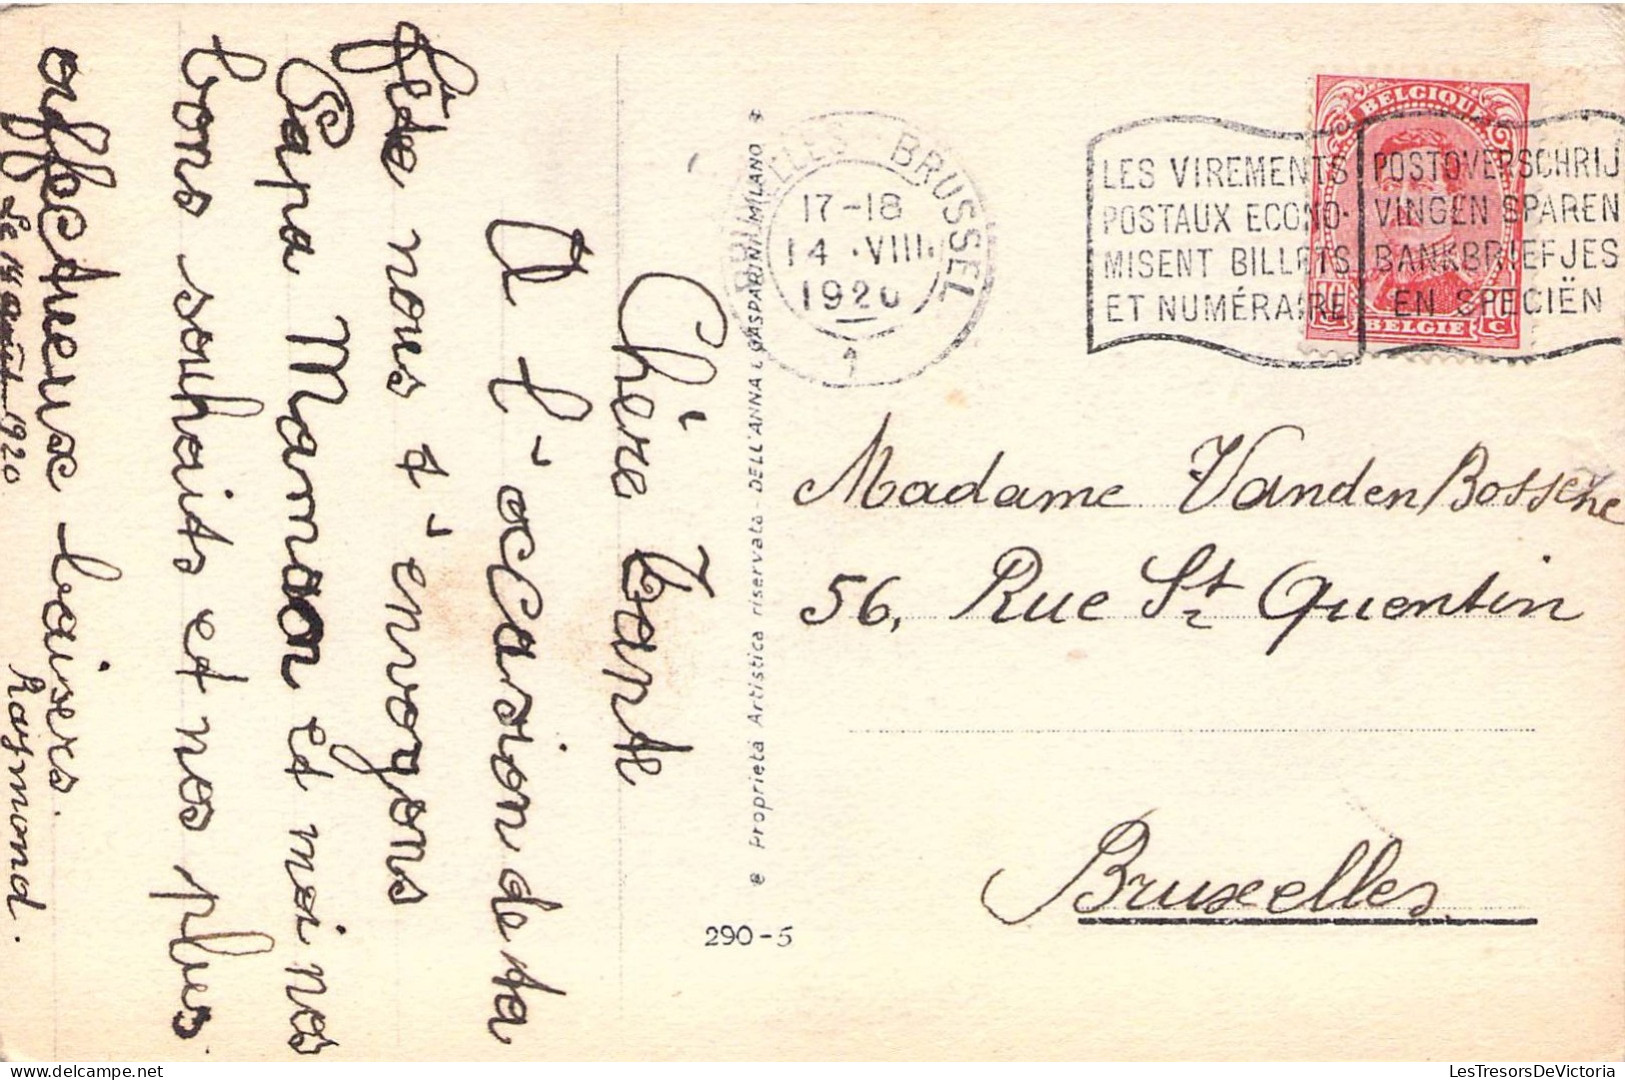 Chère Tante
A l'occasion de ta
fête nous t'envoyons
Papa Maman et moi nos
bons souhaits et nos plus
affectueux baisers.
Le 14 août 1920
Raymond.
290-5
BRUXELLES BRUSSEL
17-18
14 ·VIII
1920
1
LES VIREMENTS
POSTAUX ECONO-
MISENT BILLETS
ET NUMÉRAIRE
POSTOVERSCHRIJ
VINGEN SPAREN
BANKBRIEFJES
EN SPECIËN
BELGIQUE
BELGIE
C
Madame VandenBossche
56, Rue St Quentin
Bruxelles
LesTresorsDeVictoria